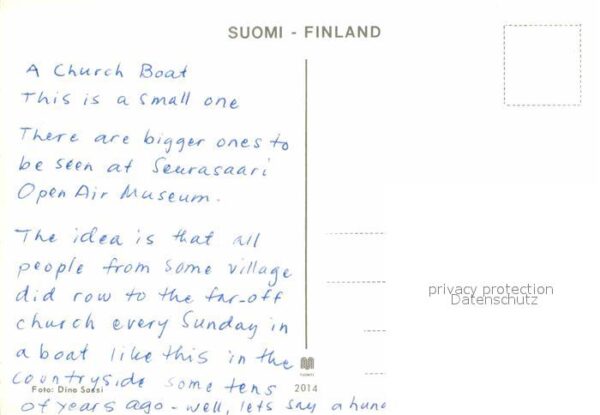 SUOMI - FINLAND
A Church Boat
This is a small one
There are bigger ones to
be seen at Seurasaari
Open Air Museum.
The idea is that all
people from some village
did row to the far-off
church every Sunday in
a boat like this in the
countryside some tens
of years ago - well, lets say a hund
Foto: Dino Sassi
2014
privacy protection
Datenschutz